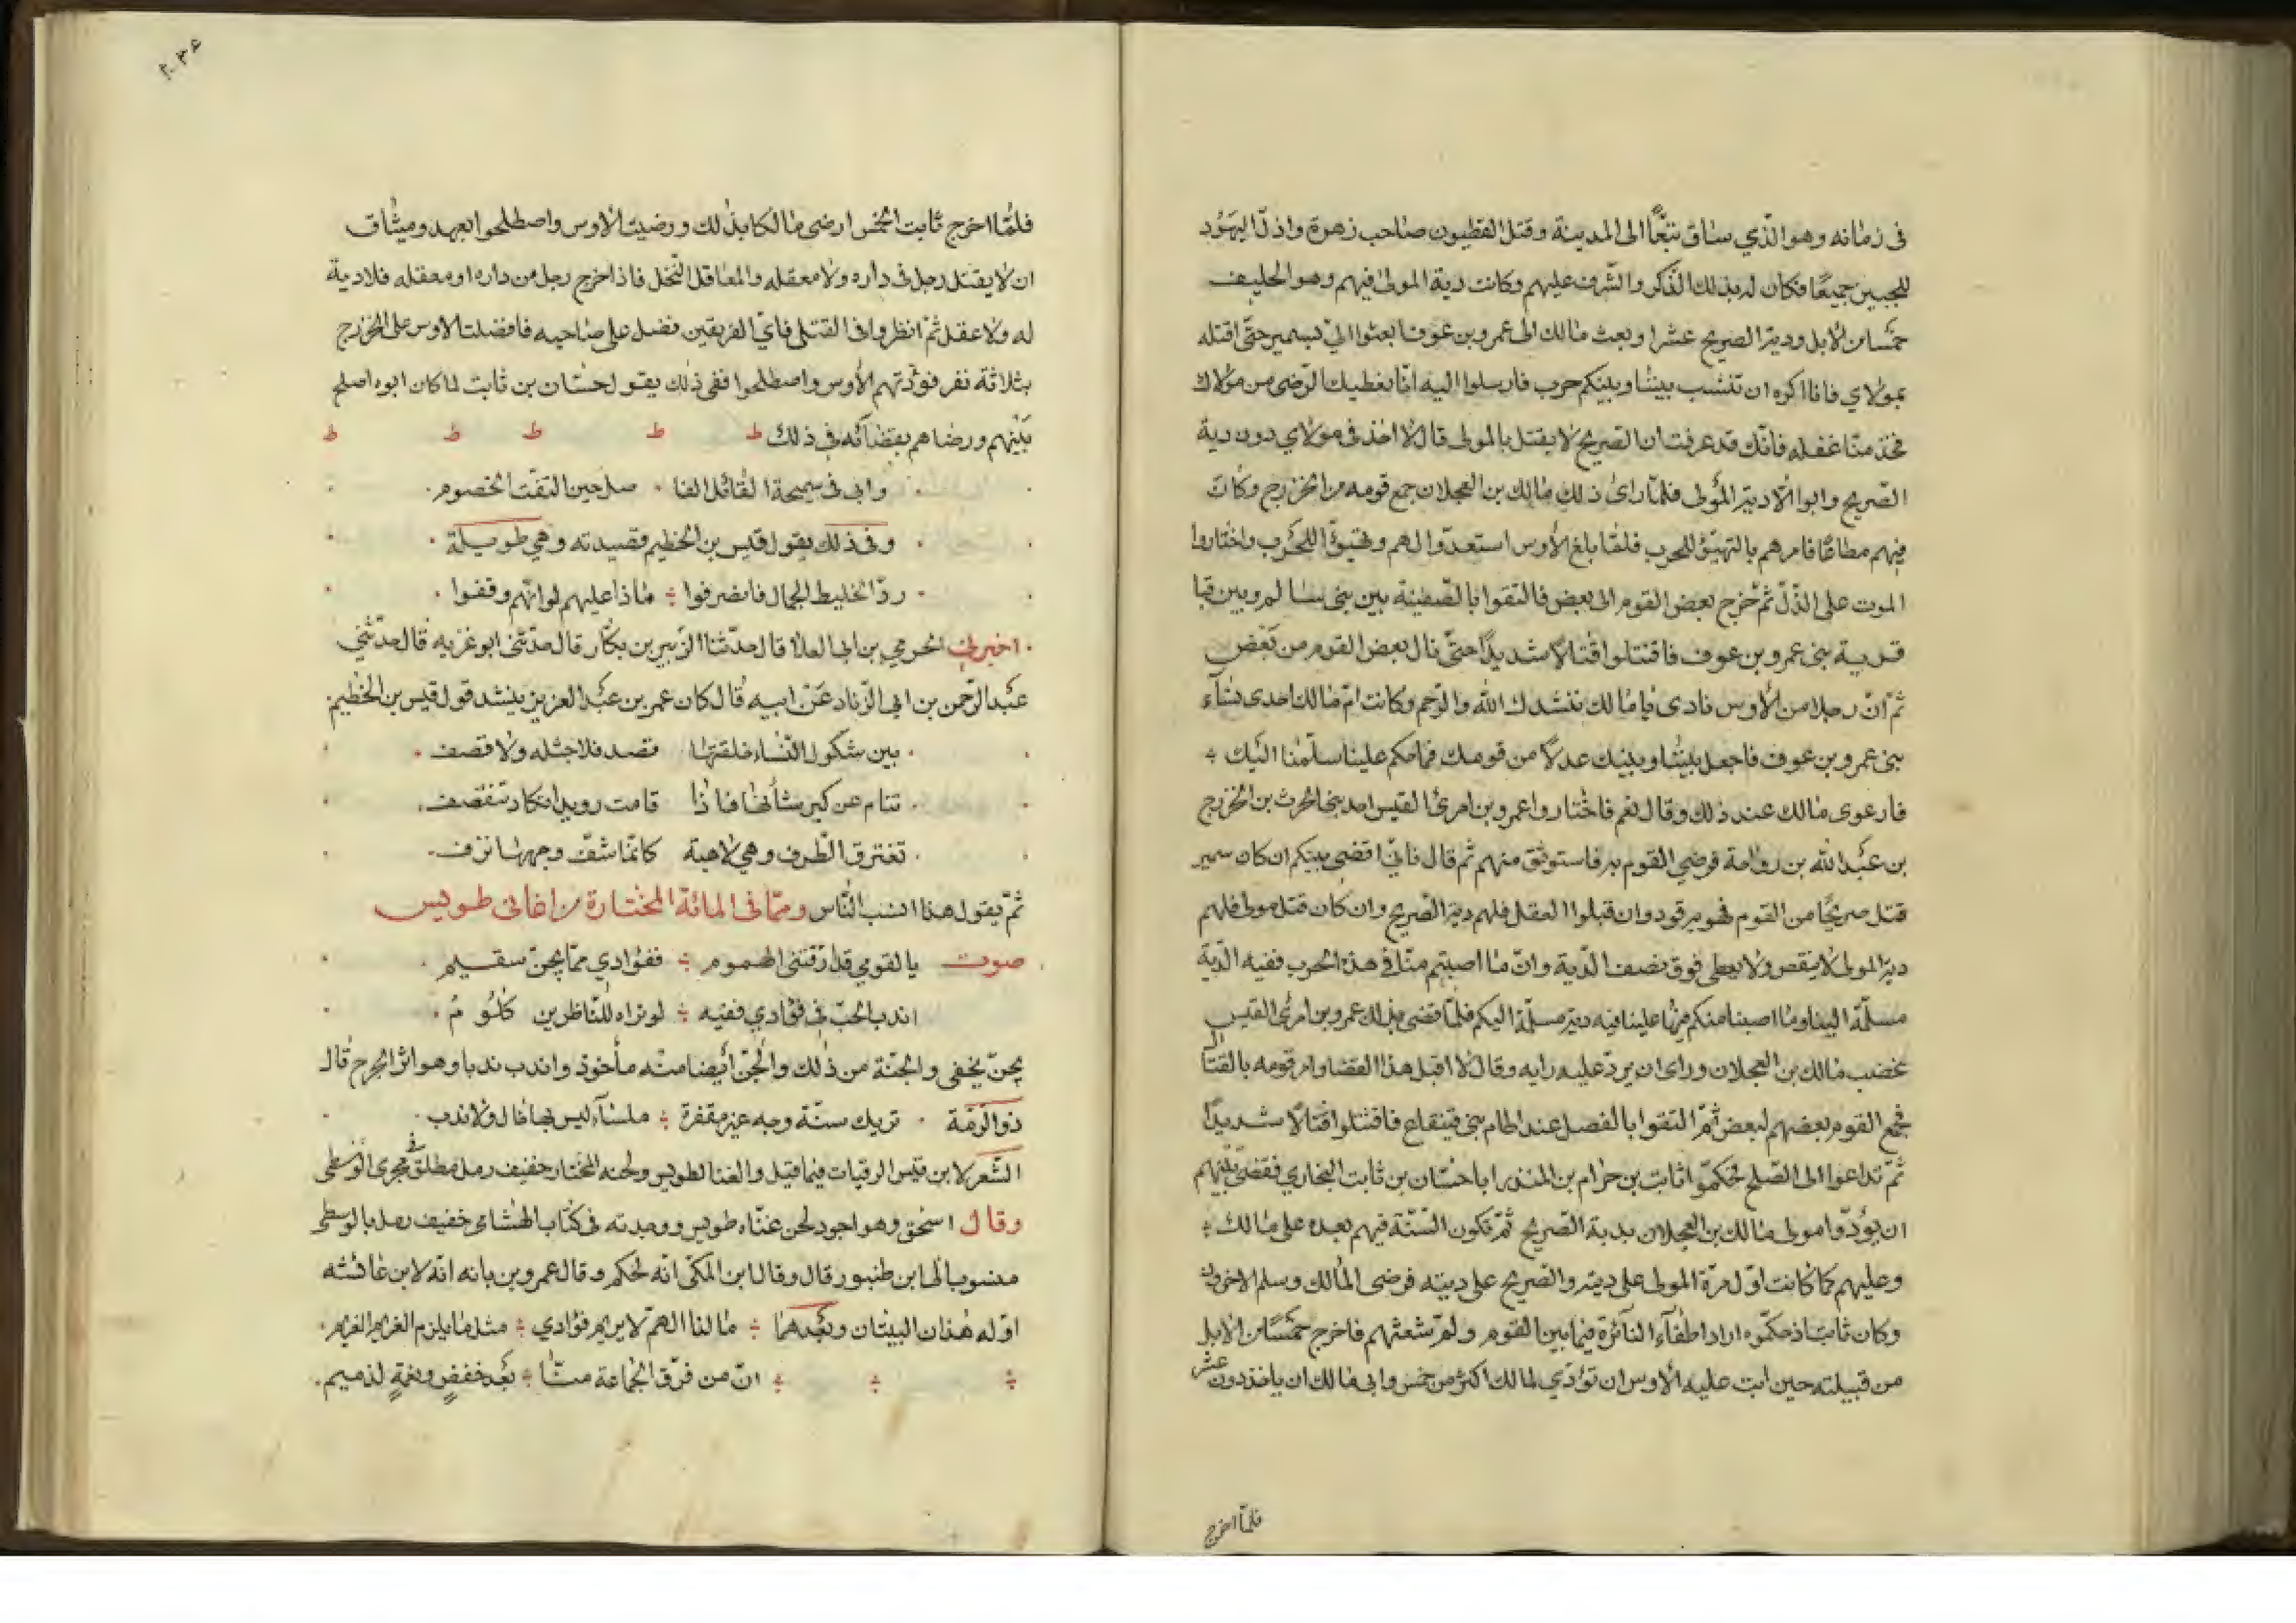 فى زمانه وهو الذي ساق تبّعًا الى المدينة وقتل الفطيون صاحب زهرة واذلّ اليهود
للحيين جميعًا فكان له بذلك الذكر والشرف عليهم وكانت دية المولى فيهم وهو الحليف
خمسًا من الابل ودية الصريح عشرا وبعث مالك الى عمرو بن عوف ابعثوا اليّ بسمير حتى اقتله
بمولاي فانا اكره ان تنشب بيننا وبينكم حرب فارسلوا اليه انّا نعطيك الرضى من مولاك
فخذ منّا عقله فانّك قد عرفت ان الصريح لا يقتل بالمولى قال لا اخذ فى مولاي دون دية
الصريح وابوا الّا دية المولى فلمّا راى ذلك مالك بن العجلان جمع قومه من الخزرج وكان
فيهم مطاعًا فامرهم بالتهيّؤ للحرب فلمّا بلغ الأوس استعدّوا لهم وتهيّؤا للحرب واختاروا
الموت على الذّلّ ثمّ خرج بعض القوم الى بعض فالتقوا بالصفينة بين بنى سالم وبين قبا
قرية بنى عمرو بن عوف فاقتتلوا قتالًا شديدًا حتّى نال بعض القوم من بعض
ثمّ انّ رجلا من الأوس نادى يا مالك ننشدك الله والرّحم وكانت امّ مالك احدى نساء
بنى عمرو بن عوف فاجعل بيننا وبينك عدلًا من قومك فما حكم علينا سلّمنا اليك
فارعوى مالك عند ذلك وقال نعم فاختاروا عمرو بن امرئ القيس احد بنى الحرث بن الخزرج
بن عبد الله بن رواحة فرضي القوم به فاستوثق منهم ثم قال فانّي اقضى بينكم ان كان سمير
قتل صريحًا من القوم فهو به قود وان قبلوا العقل فلهم دية الصريح وان كان قتل مولى فلهم
دية المولى لا ينقص ولا يعطى فوق نصف الدّية وانّ ما اصبتم منّا فى هذه الحرب ففيه الدّية
مسلّمة الينا وما اصبنا منكم فيها علينا فيه دية مسلّمة اليكم فلمّا قضى بذلك عمرو بن امرئ القيس
غضب مالك بن العجلان وراى ان يردّ عليه رايه وقال لا اقبل هذا القضا وامر قومه بالقتال
فجمع القوم بعضهم لبعض ثمّ التقوا بالفضل عند اطام بنى قينقاع فاقتتلوا قتالًا شديدًا
ثمّ تداعوا الى الصّلح فحكّموا ثابت بن حرام بن المنذر ابا حسّان بن ثابت النجاري فقضى بينهم
ان يؤدّوا مولى مالك بن العجلان بدية الصريح ثمّ تكون السّنّة فيهم بعده على مالك
وعليهم كما كانت اوّل مرّة المولى على ديته والصريح على ديته فرضى مالك وسلم الاخرون
وكان ثابت اذ حكّموه اراد اطفاء النائرة فيما بين القوم ولمّ شعثهم فاخرج خمسًا من الابل
من قبيلته حين ابت عليه الأوس ان تؤدّي لمالك اكثر من خمس وابى مالك ان ياخذ دون عشر
فلمّا اخرج
فلمّا اخرج ثابت الخمس ارضى مالكا بذلك ورضيت الاوس واصطلحوا بعهد وميثاق
ان لا يقتل رجل فى داره ولا معقله والمعاقل النّخل فاذا خرج رجل من داره او معقله فلا دية
له ولا عقل ثمّ انظروا فى القتلى فايّ الفريقين فضل على صاحبه فافضلت الاوس على الخزرج
بثلاثة نفر فودّتهم الأوس واصطلحوا ففى ذلك يقول حسّان بن ثابت لما كان ابوه اصلح
بينهم ورضاهم بقضائه فى ذلك ط ط ط ط ط
وابى فى سميحة القائل الفا صل حين التفت الخصوم
وفى ذلك يقول قيس بن الخطيم قصيدته وهي طويلة
ردّ الخليط الجمال فانصرفوا ماذا عليهم لو انّهم وقفوا
اخبرني الحرمي بن ابى العلا قال حدّثنا الزّبير بن بكّار قال حدّثنى ابو غزيه قال حدّثني
عبد الرّحمن بن ابى الزّناد عن ابيه قال كان عمر بن عبد العزيز ينشد قول قيس بن الخطيم
بين شكول النّساء خلقتها قصد فلا جثله ولا قضف
تنام عن كبر شأنها فاذا قامت رويدا تكاد تنقصف
تغترق الطّرف وهي لاهية كانّما شفّ وجهها نزف
ثمّ يقول هذا انسب النّاس وممّا فى المائة المختارة من اغانى طويس
صوت يا لقومي قد ارّقتنى الهموم ففؤادي ممّا يجنّ سقيم
اندب الحبّ فى فؤادي ففيه لو تراه للنّاظرين كلوم
يجنّ يخفى والجنّة من ذلك والجنّ أيضا منه مأخوذ واندب ندبا وهو اثر الجرح قال
ذو الرّمّة تريك سنّة وجه غير مقفرة ملساء ليس بها خال ولا ندب
الشّعر لابن قيس الرقيات فيما قيل والغنا لطويس ولحنه المختار خفيف رمل مطلق فى مجرى الوسطى
وقال اسحق وهو اجود لحن غنّاه طويس ووجدته فى كتاب الهشامى خفيف رمل بالوسطى
منسوبا الى ابن طنبور قال وقال ابن المكّى انّه لحكم وقال عمرو بن بانه انّه لابن عائشه
اوّله هذان البيتان وبعدهما ما لذا الهمّ لا يريم فؤادي مثل ما يلزم الغريم الغريم
انّ من فرّق الجماعة منّا بعد خفضٍ ونعمةٍ لذميم